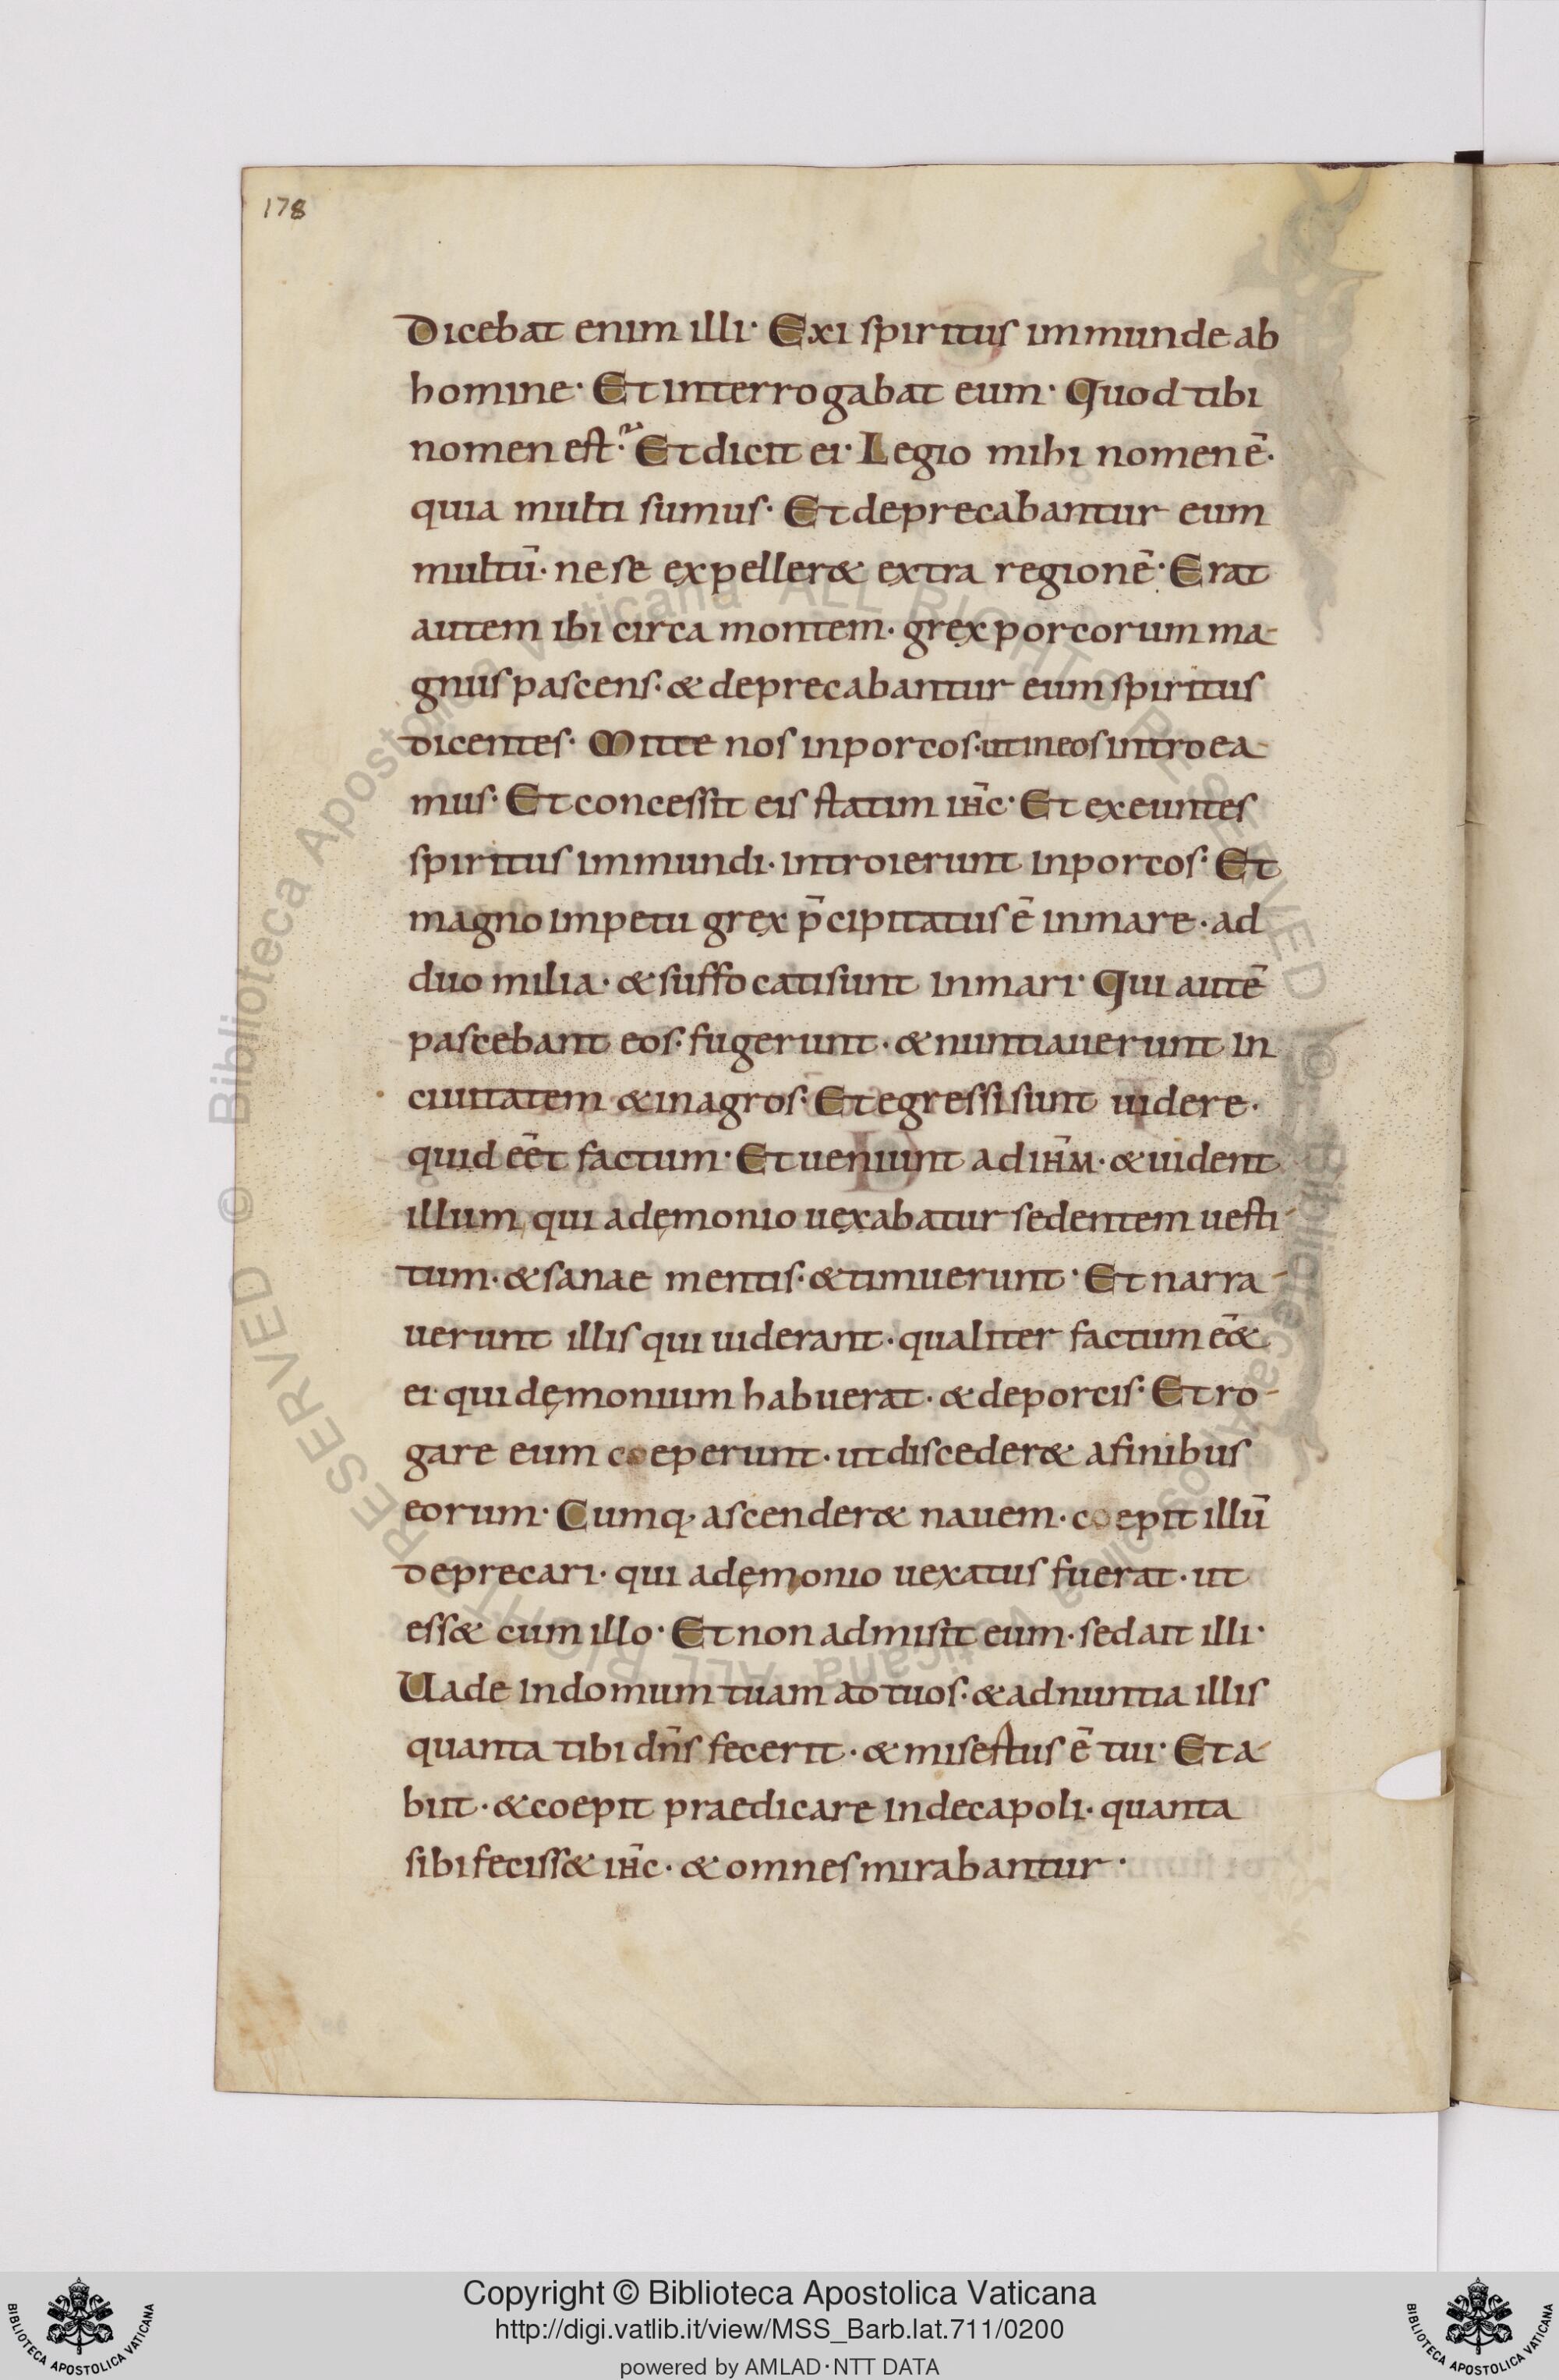 178
Dicebat enim illi· Exi spiritus immunde ab
homine· Et interrogabat eum· Quod tibi
nomen est·? Et dicit ei· Legio mihi nomen ē·
quia multi sumus· Et deprecabantur eum
multū· ne se expeller& extra regionē· Erat
autem ibi circa montem· grex porcorum ma-
gnus pascens· & deprecabantur eum spiritus
dicentes· Mitte nos in porcos· ut in eos introea-
mus· Et concessit eis statim ih̄c· Et exeuntes
spiritus immundi· introierunt in porcos· Et
magno impetu grex p̄cipitatus ē in mare· ad
duo milia· & suffocati sunt in mari· Qui autē
pascebant eos· fugerunt· & nuntiauerunt in
ciuitatem & in agros· Et egressi sunt uidere·
quid eēt factum· Et ueniunt ad ih̄m· & uident
illum qui a dęmonio uexabatur sedentem uesti-
tum· & sanae mentis· & timuerunt· Et narra-
uerunt illis qui uiderant· qualiter factum eē&
ei qui dęmonium habuerat· & de porcis· Et ro-
gare eum coeperunt· ut disceder& a finibus
eorum· Cumq· ascender& nauem· coepit illū
deprecari· qui a dęmonio uexatus fuerat· ut
ess& cum illo· Et non admisit eum· sed ait illi·
Uade in domum tuam ad tuos· & adnuntia illis
quanta tibi dn̄s fecerit· & misertus ē tui· Et a-
biit· & coepit praedicare in decapoli· quanta
sibi feciss& ih̄c· & omnes mirabantur·
© Biblioteca Apostolica Vaticana ALL RIGHTS RESERVED
© Biblioteca Apostolica Vaticana ALL RIGHTS RESERVED
Copyright © Biblioteca Apostolica Vaticana
http://digi.vatlib.it/view/MSS_Barb.lat.711/0200
powered by AMLAD·NTT DATA
BIBLIOTECA APOSTOLICA VATICANA
BIBLIOTECA APOSTOLICA VATICANA